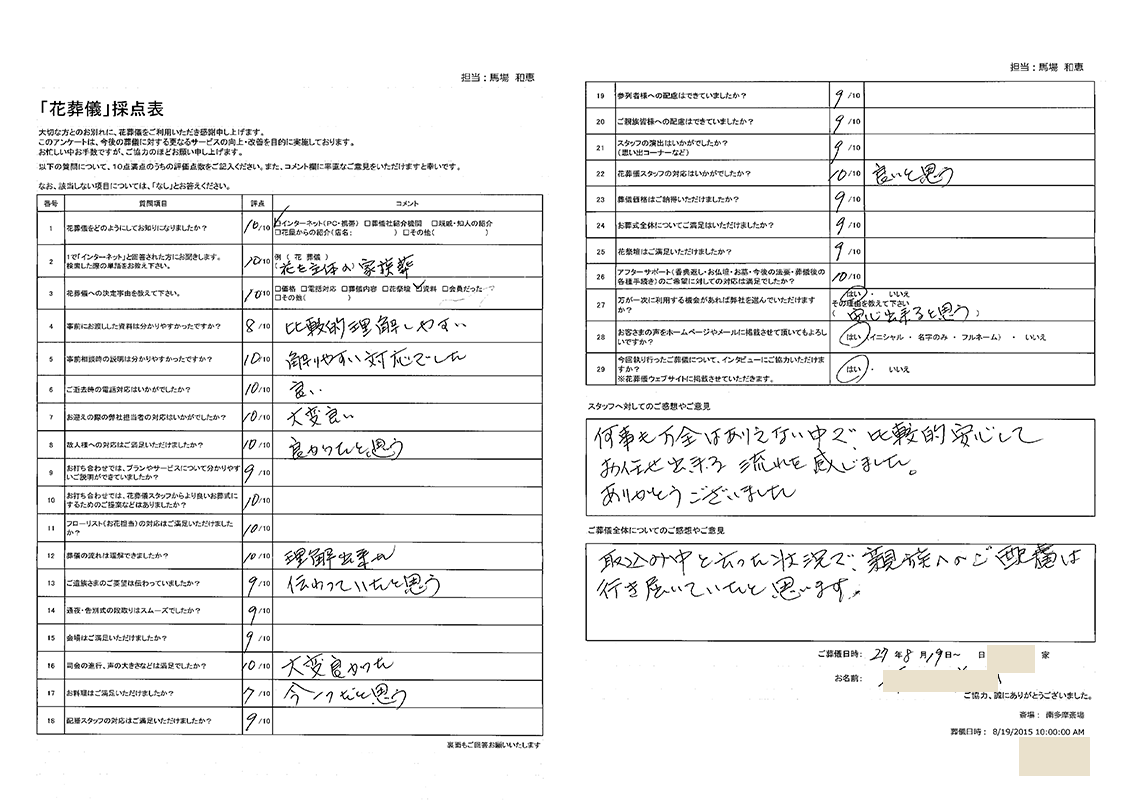 担当：馬場 和恵
「花葬儀」採点表
大切な方とのお別れに、花葬儀をご利用いただき感謝申し上げます。
このアンケートは、今後の葬儀に対する更なるサービスの向上・改善を目的に実施しております。
お忙しい中お手数ですが、ご協力のほどお願い申し上げます。
以下の質問について、10点満点のうちの評価点数をご記入ください。また、コメント欄に率直なご意見をいただけますと幸いです。
なお、該当しない項目については、「なし」とお答えください。
番号 質問項目 評点 コメント
1 花葬儀をどのようにしてお知りになりましたか？ 10/10 ☑インターネット（PC・携帯） □葬儀社紹介機関 □親戚・知人の紹介
□花屋からの紹介（店名： ） □その他（ ）
2 1で「インターネット」と回答された方にお聞きします。
検索した際の単語をお教え下さい。 10/10 例（ 花 葬儀 ）
（花を主体の 家族葬
3 花葬儀への決定事由を教えて下さい。 10/10 □価格 □電話対応 □葬儀内容 □花祭壇 ☑資料 □会員だった
□その他（ ）
4 事前にお渡しした資料は分かりやすかったですか？ 8/10 比較的理解しやすい
5 事前相談時の説明は分かりやすかったですか？ 10/10 解りやすい対応でした
6 ご逝去時の電話対応はいかがでしたか？ 10/10 良い
7 お迎えの際の弊社担当者の対応はいかがでしたか？ 10/10 大変良い
8 故人様への対応はご満足いただけましたか？ 10/10 良かったと思う
9 お打ち合わせでは、プランやサービスについて分かりやす
いご説明ができていましたか？ 9/10
10 お打ち合わせでは、花葬儀スタッフからより良いお葬式に
するためのご提案などはありましたか？ 10/10
11 フローリスト（お花担当）の対応はご満足いただけました
か？ 10/10
12 葬儀の流れは理解できましたか？ 10/10 理解出来た
13 ご遺族さまのご要望は伝わっていましたか？ 9/10 伝わっていたと思う
14 通夜・告別式の段取りはスムーズでしたか？ 9/10
15 会場はご満足いただけましたか？ 9/10
16 司会の進行、声の大きさなどは満足でしたか？ 10/10 大変良かった
17 お料理はご満足いただけましたか？ 7/10 今一つだと思う
18 配膳スタッフの対応はご満足いただけましたか？ 9/10
裏面もご回答お願いいたします
担当：馬場 和恵
19 参列者様への配慮はできていましたか？ 9/10
20 ご親族皆様への配慮はできていましたか？ 9/10
21 スタッフの演出はいかがでしたか？
（思い出コーナーなど） 9/10
22 花葬儀スタッフの対応はいかがでしたか？ 10/10 良いと思う
23 葬儀価格はご納得いただけましたか？ 9/10
24 お葬式全体についてご満足はいただけましたか？ 9/10
25 花祭壇はご満足いただけましたか？ 9/10
26 アフターサポート（香典返し・お仏壇・お墓・今後の法要・葬儀後の
各種手続き）のご希望に対しての対応は満足でしたか？ 10/10
27 万が一次に利用する機会があれば弊社を選んでいただけます
か？ はい ・ いいえ
その理由を教えて下さい
（ 安心出来ると思う ）
28 お客さまの声をホームページやメールに掲載させて頂いてもよろし
いですか？ はい（イニシャル ・ 名字のみ ・ フルネーム） ・ いいえ
29 今回執り行ったご葬儀について、インタビューにご協力いただけま
すか？
※花葬儀ウェブサイトに掲載させていただきます。 はい ・ いいえ
スタッフへ対してのご感想やご意見
何事も万全はありえない中で、比較的安心して
お任せ出来る 流れを感じました。
ありがとうございました
ご葬儀全体についてのご感想やご意見
取込み中と云った状況で、親族へのご配慮は
行き届いていたと思います。
ご葬儀日時： 27年8月19日～ 日 家
お名前：
ご協力、誠にありがとうございました。
斎場： 南多摩斎場
葬儀日時： 8/19/2015 10:00:00 AM